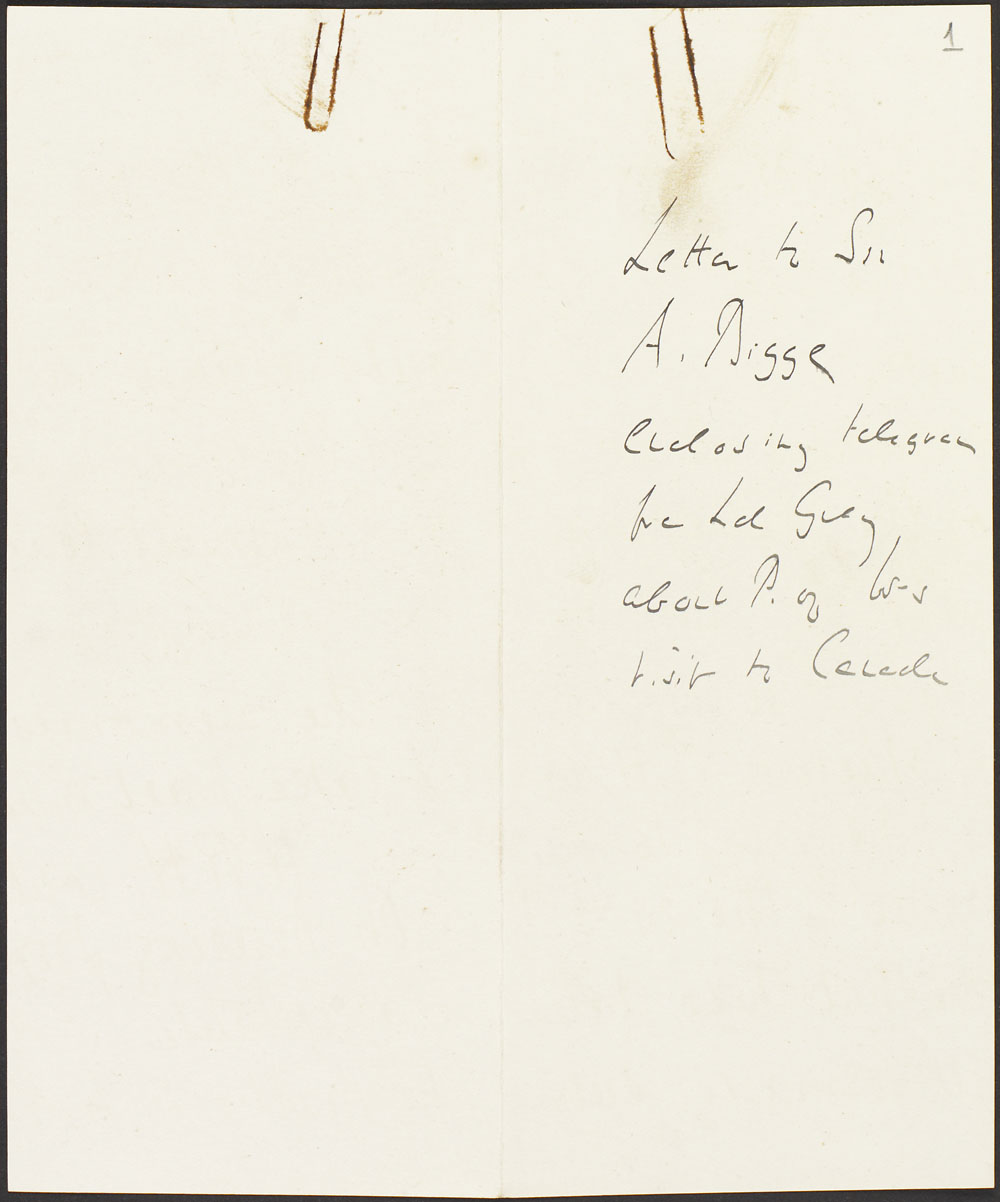 1
Letter to Sir
A. Bigge
enclosing telegram
fm Ld Grey
about P. of W's
visit to Canada